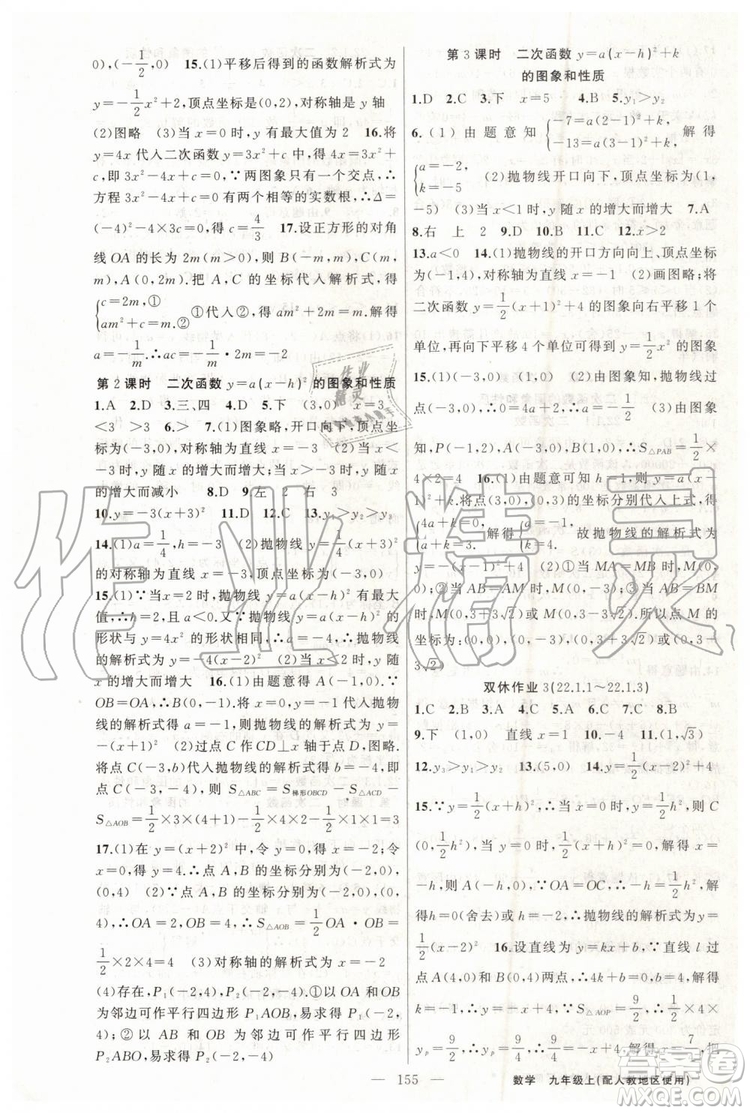 0),(-1/2,0) 15.(1)平移后得到的函数解析式为
y=-1/2x²+2,顶点坐标是(0,2),对称轴是 y 轴
(2)图略 (3)当 x=0 时,y 有最大值为 2 16.将
y=4x 代入二次函数 y=3x²+c,得 4x=3x²+c,
即 3x²-4x+c=0,∵两图象只有一个交点,∴
方程 3x²-4x+c=0 有两个相等的实数根,∴Δ=
(-4)²-4×3c=0,得 c=4/3 17.设正方形的对角
线 OA 的长为 2m(m>0),则 B(-m,m),C(m,
m),A(0,2m).把 A,C 的坐标代入解析式,得
{c=2m,① am²+c=m.② ①代入②得:am²+2m=m,解得:
a=-1/m.∴ac=-1/m·2m=-2
第 2 课时 二次函数 y=a(x-h)² 的图象和性质
1.A 2.D 3.三、四 4.D 5.下 (3,0) x=3
<3 >3 6.> 7.(1)图象略,开口向下,顶点坐
标为(-3,0),对称轴为直线 x=-3 (2)当 x<
-3 时,y 随 x 的增大而增大;当 x>-3 时,y 随 x
的增大而减小 8.D 9.左 2 右 3
10.y=-3(x+3)² 11.D 12.C 13.y₁>y₂>y₃
14.(1)a=1/4,h=-3 (2)抛物线 y=1/4(x+3)²
的对称轴为直线 x=-3,顶点坐标为(-3,0)
15.(1)∵当 x=2 时,有最大值,∴h=2.∵抛物
线开口向下,且 a<0.又∵抛物线 y=a(x-h)² 的
形状与 y=4x² 的形状相同,∴a=-4.∴抛物线
的解析式为 y=-4(x-2)² (2)当 x<2 时,y 随
x 的增大而增大 16.(1)由题意得 B(-1,0),∵
OB=OA,∴A(0,-1).把 x=0,y=-1 代入抛物
线的解析式得 a=-1,∴抛物线的解析式为 y=
-(x+1)² (2)过点 C 作 CD⊥x 轴于点 D,图略.
将点 C(-3,b)代入抛物线的解析式得 b=-4,则
点 C(-3,-4),所以 S△ABC=S梯形OBCD-S△ACD-
S△AOB=1/2×3×(4+1)-1/2×4×2-1/2×1×1=3
17.(1)在 y=(x+2)² 中,令 y=0,得 x=-2;令
x=0,得 y=4.∴点 A,B 的坐标分别为(-2,0),
(0,4) (2)∵点 A,B 的坐标分别为(-2,0),(0,
4),∴OA=2,OB=4,∴S△AOB=1/2OA·OB=
1/2×2×4=4 (3)对称轴的解析式为直线 x=-2
(4)存在,P₁(-2,4),P₂(-2,-4).①以 OA 和 OB
为邻边可作平行四边形 P₁AOB,易求得 P₁(-2,
4);②以 AB 和 OB 为邻边可作平行四边形
P₂ABO,易求得 P₂(-2,-4)
第 3 课时 二次函数 y=a(x-h)²+k
的图象和性质
1.D 2.C 3.下 x=5 4.B 5.y₁>y₂
6.(1)由题意知{-7=a(2-1)²+k, -5=a(1-1)²+k, 解得
{a=-2, k=-5. (2)抛物线开口向下,顶点坐标为(1,
-5) (3)当 x<1 时,y 随 x 的增大而增大 7.A
8.右 上 2 9.D 10.B 11.C 12.x>2
13.a<0 14.(1)抛物线的开口方向向上、顶点坐
标为(-1,4),对称轴为 x=-1 (2)画图略;将
二次函数 y=1/2(x+1)²+4 的图象向右平移 1 个
单位,再向下平移 4 个单位可得到 y=1/2x² 的图象
15.(1)(-2,-4) (2)将原点坐标(0,0)代入抛
物线解析式,得 0=4a+2,∴a=-1/2 (3)由题意
知,P(-2,2),A(0,-2),B(1,0),∴S△PAB=1/2
×2×2=4 16.(1)由题意可知:抛物线的解析式为
y=a(x-1)²+k,把(0,3),(3,0)的坐标分别代入上式,得
{a+k=3, 4a+k=0, 解得{a=-1, k=4. 故抛物线的解析式为
y=-(x-1)²+4 (2)①当 MA=MB 时,M(0,
0);②当 AB=AM 时,M(0,-3);③当 AB=BM
时,M(0,3+3√2)或 M(0,3-3√2).所以点 M
的坐标为:(0,0)或(0,-3)或(0,3+3√2)或(0,
3-3√2)
双休作业 3(22.1.1~22.1.3)
1.C 2.B 3.C 4.A 5.A 6.C 7.C 8.B
9.下 (1,0) 直线 x=1 10.-4 11.(1,√3)
12.y₃>y₁>y₂ 13.-2 14.y=-(x-2)²+4
15.∵y=1/2(x+h)²,∴当 x=0 时,y=1/2h²,则 C
(0,1/2h²),A(-h,0).∵OA=OC,∴-h=1/2h²,解
得 h=0(舍去)或 h=-2,∴抛物线的解析式为 y=
1/2(x-2)² 16.设直线为 y=kx+b,∵直线 l 过
点 A(4,0)和 B(0,4)两点,∴y=-x+4.∵S△AOP
=9/2,∴1/2×4×yₚ=9/2,∴yₚ=9/4,∴9/4=-x+4,解
155
数学 九年级上(配人教地区使用)
作业精灵